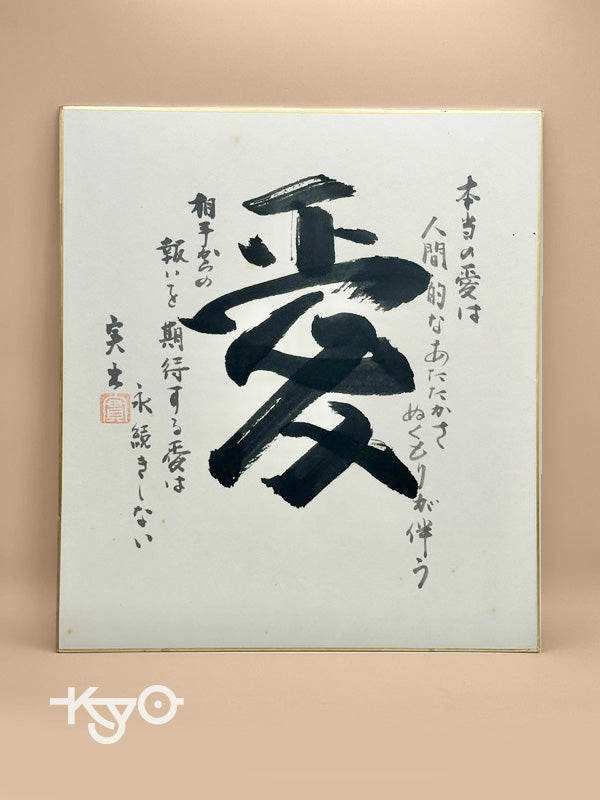 本当の愛は
人間的なあたたかさ
ぬくもりが伴う
愛
相手からの
報いを期待する愛は
永続きしない
実
實
KYO